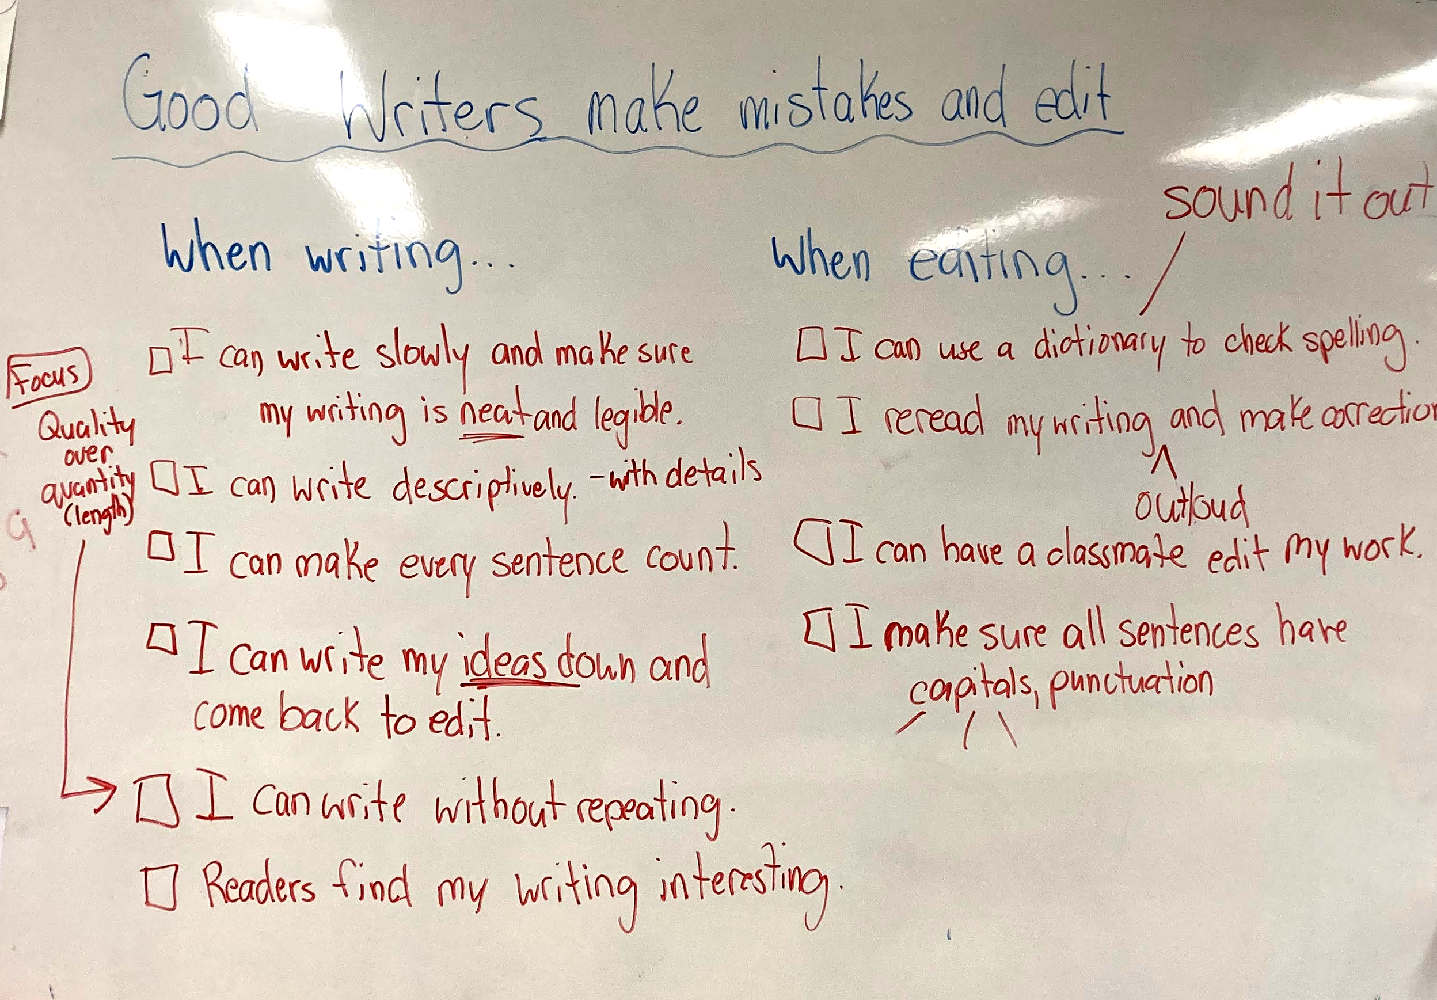 Good Writers make mistakes and edit
When writing...
☐ I can write slowly and make sure
my writing is neat and legible.
☐ I can write descriptively. - with details
☐ I can make every sentence count.
☐ I can write my ideas down and
come back to edit.
☐ I can write without repeating.
☐ Readers find my writing interesting.
Focus
Quality
over
quantity
(length)
When editing...
sound it out
☐ I can use a dictionary to check spelling.
☐ I reread my writing and make correction
outloud
☐ I can have a classmate edit my work.
☐ I make sure all sentences have
capitals, punctuation